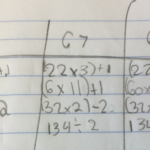 67
+1 (22×3)+1 (22
(6×11)+1 (60
2 (32×2)-2 (32
134÷2 134